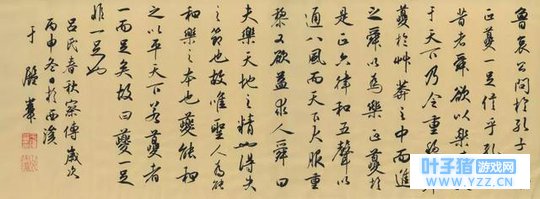 魯哀公問於孔子
正夔一足信乎孔
昔者舜欲以樂
于天下乃令重
夔於艸莽之中而進
之舜以為樂正夔於
是正六律和五聲以
通八風而天下大服重
黎又欲益求人舜曰
夫樂天地之精也得失
之節也故唯聖人為能
和樂之本也夔能和
之以平天下若夔者
一而足矣故曰夔一足
非一足也
呂氏春秋察傳歲次
丙申冬日於西溪
于
叶子猪游戏网
www.YZZ.CN